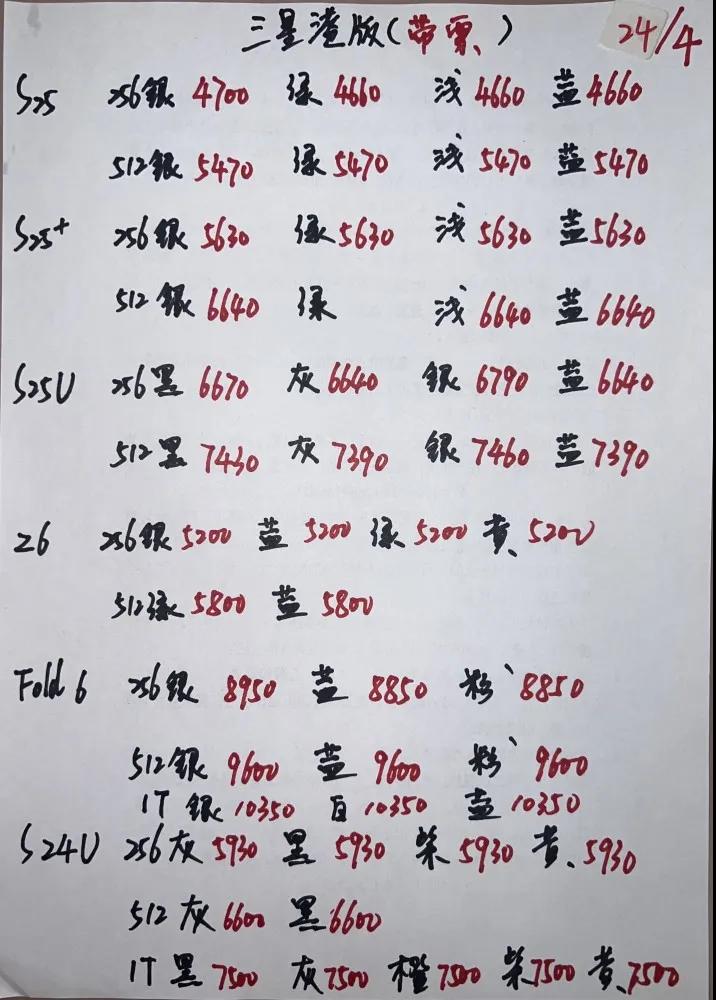 三星港版(带票) 24/4
S25 256银 4700 绿 4660 浅 4660 蓝 4660
512银 5470 绿 5470 浅 5470 蓝 5470
S25+ 256银 5630 绿 5630 浅 5630 蓝 5630
512银 6640 绿 浅 6640 蓝 6640
S25U 256黑 6670 灰 6640 银 6790 蓝 6640
512黑 7430 灰 7390 银 7460 蓝 7390
Z6 256银 5200 蓝 5200 绿 5200 黄 5200
512绿 5800 蓝 5800
Fold 6 256银 8950 蓝 8850 粉 8850
512银 9600 蓝 9600 粉 9600
1T 银 10350 白 10350 蓝 10350
S24U 256灰 5930 黑 5930 紫 5930 黄 5930
512灰 6600 黑 6600
1T 黑 7500 灰 7500 橙 7500 紫 7500 黄 7500